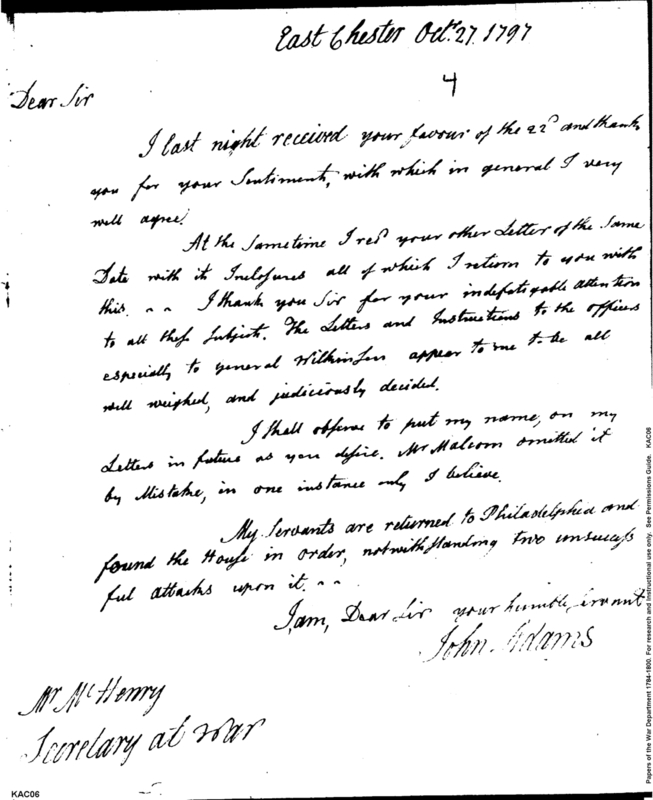 East Chester Octr. 27. 1797
4
Dear Sir
I last night received your favour of the 22d and thank
you for your Sentiments, with which in general I very
well agree.
At the Sametime I recd your other Letter of the Same
Date with its Inclosures all of which I return to you with
this. ~ ~ I thank you Sir for your indefatigable attention
to all these Subjects. The Letters and Instructions to the officers
especially to general Wilkinson appear to me to be all
well weighed, and judiciously decided.
I shall observe to put my name, on my
Letters in future as you desire. Mr Malcom omitted it
by Mistake, in one instance only I believe.
My Servants are returned to Philadelphia and
found the House in order, notwithstanding two unsucess
ful attacks upon it. ~ ~
I am, Dear Sir your humble Servant
John Adams
Mr McHenry
Secretary at War
KAC06
Papers of the War Department 1784-1800. For research and instructional use only. See Permissions Guide. KAC06